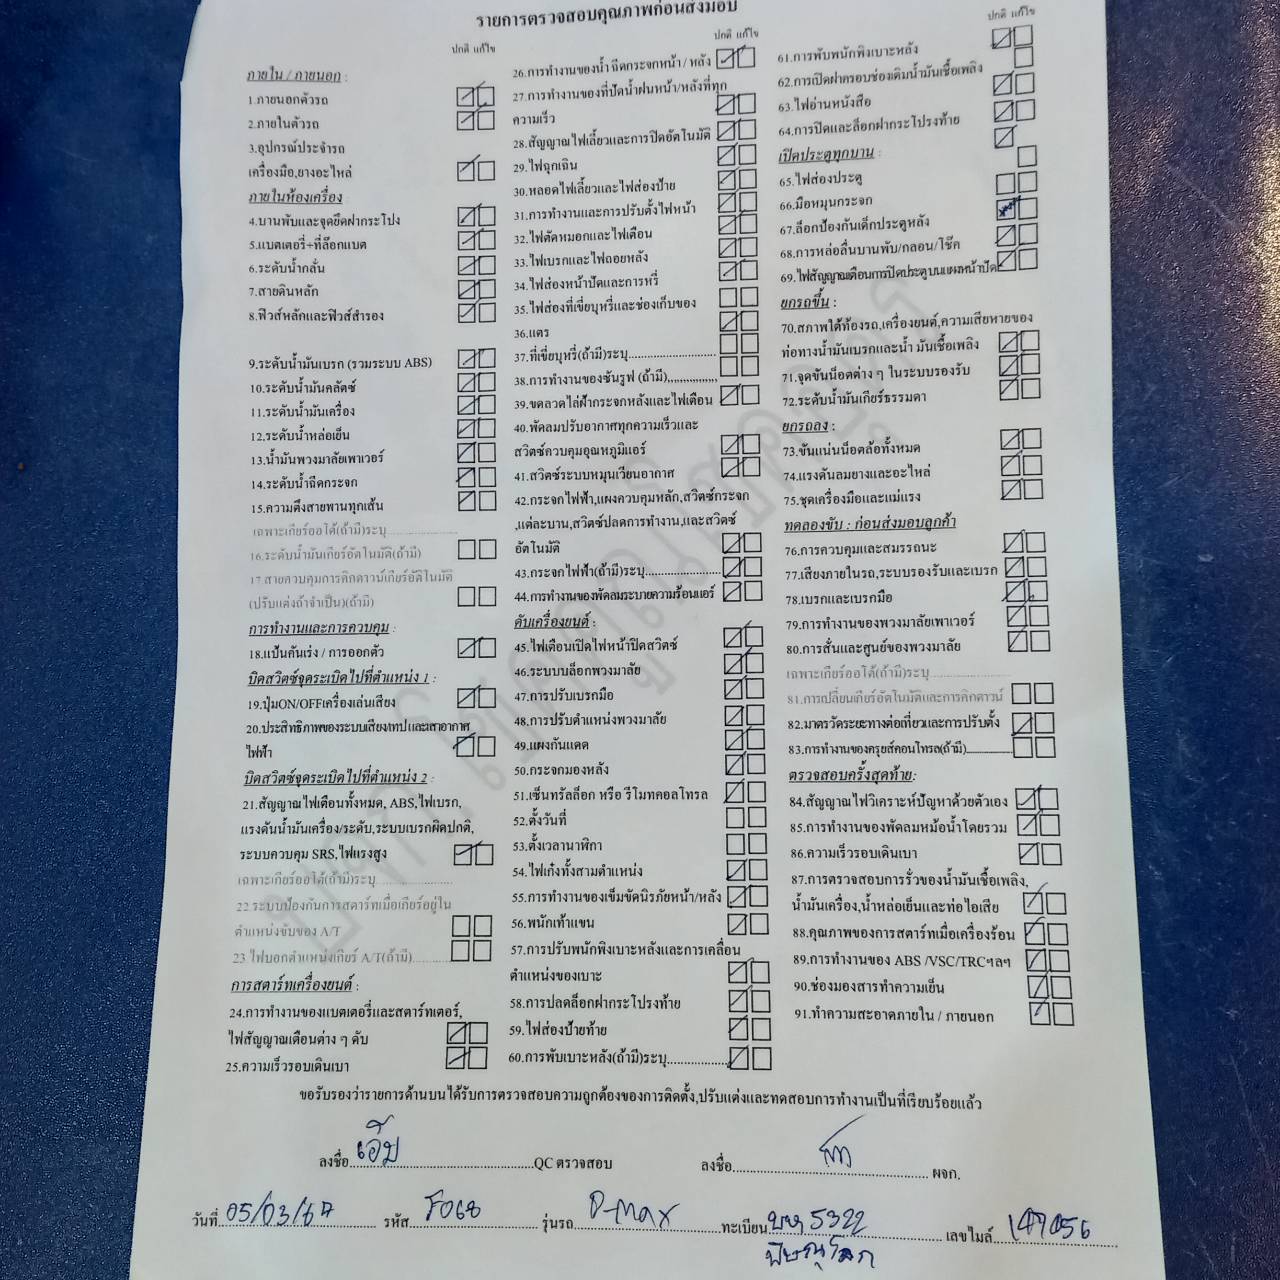 รายการตรวจสอบคุณภาพก่อนส่งมอบ
ปกติ แก้ไข
ภายใน / ภายนอก :
1.ภายนอกตัวรถ
2.ภายในตัวรถ
3.อุปกรณ์ประจำรถ
เครื่องมือ,ยางอะไหล่
ภายในห้องเครื่อง
4.บานพับและจุดยึดฝากระโปง
5.แบตเตอรี่+ที่ล็อกแบต
6.ระดับน้ำกลั่น
7.สายดินหลัก
8.ฟิวส์หลักและฟิวส์สำรอง
9.ระดับน้ำมันเบรก (รวมระบบ ABS)
10.ระดับน้ำมันคลัตซ์
11.ระดับน้ำมันเครื่อง
12.ระดับน้ำหล่อเย็น
13.น้ำมันพวงมาลัยเพาเวอร์
14.ระดับน้ำฉีดกระจก
15.ความตึงสายพานทุกเส้น
เฉพาะเกียร์ออโต้(ถ้ามี)ระบุ
16.ระดับน้ำมันเกียร์อัตโนมัติ(ถ้ามี)
17.สายควบคุมการคิกดาวน์เกียร์อัติโนมัติ
(ปรับแต่งถ้าจำเป็น)(ถ้ามี)
การทำงานและการควบคุม :
18.แป้นคันเร่ง / การออกตัว
บิดสวิตซ์จุดระเบิดไปที่ตำแหน่ง 1 :
19.ปุ่มON/OFFเครื่องเล่นเสียง
20.ประสิทธิภาพของระบบเสียง/เทป และเสาอากาศ
ไฟฟ้า
บิดสวิตซ์จุดระเบิดไปที่ตำแหน่ง 2 :
21.สัญญาณไฟเตือนทั้งหมด, ABS,ไฟเบรก,
แรงดันน้ำมันเครื่อง/ระดับ,ระบบเบรกผิดปกติ,
ระบบควบคุม SRS,ไฟแรงสูง
เฉพาะเกียร์ออโต้(ถ้ามี)ระบุ
22.ระบบป้องกันการสตาร์ทเมื่อเกียร์อยู่ใน
ตำแหน่งขับของ A/T
23.ไฟบอกตำแหน่งเกียร์ A/T(ถ้ามี)
การสตาร์ทเครื่องยนต์ :
24.การทำงานของแบตเตอรี่และสตาร์ทเตอร์,
ไฟสัญญาณเตือนต่าง ๆ ดับ
25.ความเร็วรอบเดินเบา
ปกติ แก้ไข
26.การทำงานของน้ำ ฉีดกระจกหน้า / หลัง
27.การทำงานของที่ปัดน้ำฝนหน้า/หลังที่ทุก
ความเร็ว
28.สัญญาณไฟเลี้ยวและการปิดอัตโนมัติ
29.ไฟฉุกเฉิน
30.หลอดไฟเลี้ยวและไฟส่องป้าย
31.การทำงานและการปรับตั้งไฟหน้า
32.ไฟตัดหมอกและไฟเตือน
33.ไฟเบรกและไฟถอยหลัง
34.ไฟส่องหน้าปัดและการหรี่
35.ไฟส่องที่เขี่ยบุหรี่และช่องเก็บของ
36.แตร
37.ที่เขี่ยบุหรี่(ถ้ามี)ระบุ
38.การทำงานของซันรูฟ (ถ้ามี)
39.ขดลวดไล่ฝ้ากระจกหลังและไฟเตือน
40.พัดลมปรับอากาศทุกความเร็วและ
สวิตซ์ควบคุมอุณหภูมิแอร์
41.สวิตซ์ระบบหมุนเวียนอากาศ
42.กระจกไฟฟ้า,แผงควบคุมหลัก,สวิตซ์กระจก
,แต่ละบาน,สวิตซ์ปลดการทำงาน,และสวิตซ์
อัตโนมัติ
43.กระจกไฟฟ้า(ถ้ามี)ระบุ
44.การทำงานของพัดลมระบายความร้อนแอร์
ดับเครื่องยนต์ :
45.ไฟเตือนเปิดไฟหน้าปิดสวิตซ์
46.ระบบบล็อกพวงมาลัย
47.การปรับเบรกมือ
48.การปรับตำแหน่งพวงมาลัย
49.แผงกันแดด
50.กระจกมองหลัง
51.เซ็นทรัลล็อก หรือ รีโมทคอลโทรล
52.ตั้งวันที่
53.ตั้งเวลานาฬิกา
54.ไฟเก๋งทั้งสามตำแหน่ง
55.การทำงานของเข็มขัดนิรภัยหน้า/หลัง
56.พนักเท้าแขน
57.การปรับพนักพิงเบาะหลังและการเคลื่อน
ตำแหน่งของเบาะ
58.การปลดล็อกฝากระโปรงท้าย
59.ไฟส่องป้ายท้าย
60.การพับเบาะหลัง(ถ้ามี)ระบุ
ปกติ แก้ไข
61.การพับพนักพิงเบาะหลัง
62.การเปิดฝาครอบช่องเติมน้ำมันเชื้อเพลิง
63.ไฟอ่านหนังสือ
64.การปิดและล็อกฝากระโปรงท้าย
เปิดประตูทุกบาน :
65.ไฟส่องประตู
66.มือหมุนกระจก
67.ล็อกป้องกันเด็กประตูหลัง
68.การหล่อลื่นบานพับ/กลอน/โช๊ค
69.ไฟสัญญาณเตือนการปิดประตูบนแผงหน้าปัด
ยกรถขึ้น :
70.สภาพใต้ท้องรถ,เครื่องยนต์,ความเสียหายของ
ท่อทางน้ำมันเบรกและน้ำ มันเชื้อเพลิง
71.จุดขันน็อตต่าง ๆ ในระบบรองรับ
72.ระดับน้ำมันเกียร์ธรรมดา
ยกรถลง :
73.ขันแน่นน็อตล้อทั้งหมด
74.แรงดันลมยางและอะไหล่
75.ชุดเครื่องมือและแม่แรง
ทดลองขับ : ก่อนส่งมอบลูกค้า
76.การควบคุมและสมรรถนะ
77.เสียงภายในรถ,ระบบรองรับและเบรก
78.เบรกและเบรกมือ
79.การทำงานของพวงมาลัยเพาเวอร์
80.การสั่นและศูนย์ของพวงมาลัย
เฉพาะเกียร์ออโต้(ถ้ามี)ระบุ
81.การเปลี่ยนเกียร์อัตโนมัติและการคิกดาวน์
82.มาตรวัดระยะทางต่อเที่ยวและการปรับตั้ง
83.การทำงานของครุยส์คอนโทรล(ถ้ามี)
ตรวจสอบครั้งสุดท้าย:
84.สัญญาณไฟวิเคราะห์ปัญหาด้วยตัวเอง
85.การทำงานของพัดลมหม้อน้ำโดยรวม
86.ความเร็วรอบเดินเบา
87.การตรวจสอบการรั่วของน้ำมันเชื้อเพลิง,
น้ำมันเครื่อง,น้ำหล่อเย็นและท่อไอเสีย
88.คุณภาพของการสตาร์ทเมื่อเครื่องร้อน
89.การทำงานของ ABS /VSC/TRCฯลฯ
90.ช่องมองสารทำความเย็น
91.ทำความสะอาดภายใน / ภายนอก
ขอรับรองว่ารายการด้านบนได้รับการตรวจสอบความถูกต้องของการติดตั้ง,ปรับแต่งและทดสอบการทำงานเป็นที่เรียบร้อยแล้ว
ลงชื่อ เอ็ม QC ตรวจสอบ ลงชื่อ ผจก.
วันที่ 05/03/67 รหัส รุ่นรถ D-MAX ทะเบียน 5322 เลขไมล์ 147056
พิษณุโลก